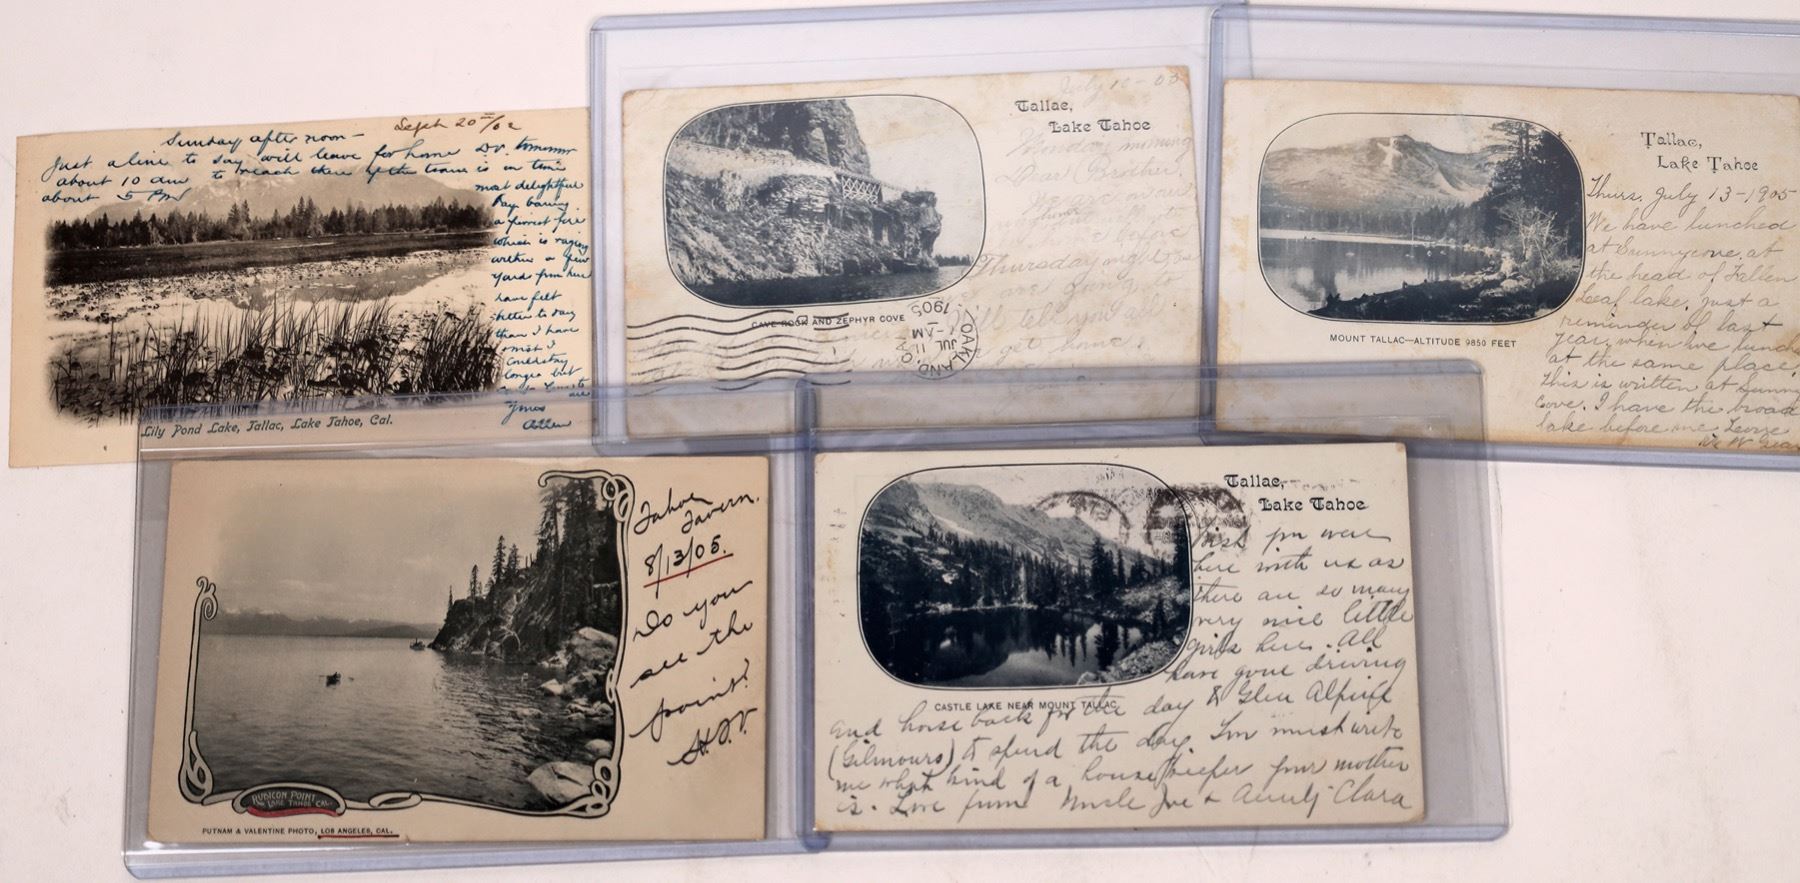 Sept 20th/02
Sunday after noon—
Just a line to say will leave for home
about 10 am to reach there if the train is in time
about 5 PM
most delightful
Day baring
a forest fire
which is raging
within a few
yards from here
have felt
better to day
than I have
could stay
longer but
Yours
Lily Pond Lake, Tallac, Lake Tahoe, Cal.
July 10-05
Tallac,
Lake Tahoe
Monday morning
Dear Brother,
We are
Thursday night
are going to
tell you all
get home.
CAVE ROCK AND ZEPHYR COVE
OAKLAND
JUL 11
-AM
1905
Tallac,
Lake Tahoe
Thurs. July 13-1905
We have lunched
at Sunnycove, at
the head of Fallen
Leaf lake, just a
reminder of last
year, when we lunch
at the same place.
This is written at Sunny
Cove. I have the broad
lake before me George
MOUNT TALLAC—ALTITUDE 9850 FEET
Tahoe
Tavern.
8/13/05.
Do you
see the
point?
H.T.V.
RUBICON POINT
LAKE TAHOE CAL.
PUTNAM & VALENTINE PHOTO, LOS ANGELES, CAL.
Tallac,
Lake Tahoe
Wish you were
here with us as
there are so many
very nice little
girls here. All
have gone driving
CASTLE LAKE NEAR MOUNT TALLAC
and horse back for the day to Glen Alpine
(Gilmours) to spend the day. You must write
me what kind of a house keeper your mother
is. Love from Uncle Joe & Aunty Clara